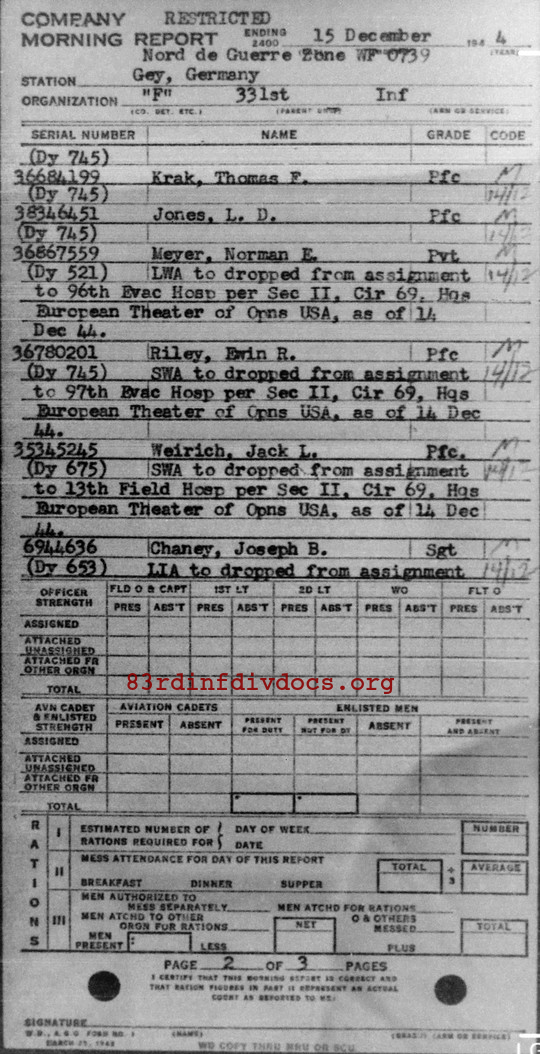 COMPANY RESTRICTED
MORNING REPORT ENDING 2400 15 December 194 4 (YEAR)
Nord de Guerre Zone WF 0739
STATION Gey, Germany
ORGANIZATION "F" 331st Inf
(CO. DET. ETC.) (PARENT UNIT) (ARM OR SERVICE)
SERIAL NUMBER NAME GRADE CODE
(Dy 745)
36684199 Krak, Thomas F. Pfc M
(Dy 745) 14/12
38346451 Jones, L. D. Pfc M
(Dy 745) 14/12
36867559 Meyer, Norman E. Pvt M
(Dy 521) LWA to dropped from assignment 14/12
to 96th Evac Hosp per Sec II, Cir 69, Hqs
European Theater of Opns USA, as of 14
Dec 44.
36780201 Riley, Ewin R. Pfc M
(Dy 745) SWA to dropped from assignment 14/12
to 97th Evac Hosp per Sec II, Cir 69, Hqs
European Theater of Opns USA, as of 14 Dec
44.
35345245 Weirich, Jack L. Pfc. M
(Dy 675) SWA to dropped from assignment 14/12
to 13th Field Hosp per Sec II, Cir 69, Hqs
European Theater of Opns USA, as of 14 Dec
44.
6944636 Chaney, Joseph B. Sgt M
(Dy 653) LIA to dropped from assignment 14/12
OFFICER STRENGTH FLD O & CAPT 1ST LT 2D LT WO FLT O
PRES ABS'T PRES ABS'T PRES ABS'T PRES ABS'T PRES ABS'T
ASSIGNED
ATTACHED UNASSIGNED
ATTACHED FR OTHER ORGN
TOTAL
83rdinfdivdocs.org
AVN CADET & ENLISTED STRENGTH AVIATION CADETS ENLISTED MEN
PRESENT ABSENT PRESENT FOR DUTY PRESENT NOT FOR DY ABSENT PRESENT AND ABSENT
ASSIGNED
ATTACHED UNASSIGNED
ATTACHED FR OTHER ORGN
TOTAL
RATIONS
I ESTIMATED NUMBER OF RATIONS REQUIRED FOR DAY OF WEEK DATE NUMBER
II MESS ATTENDANCE FOR DAY OF THIS REPORT TOTAL ÷ 3 AVERAGE
BREAKFAST DINNER SUPPER
III MEN AUTHORIZED TO MESS SEPARATELY MEN ATCHD FOR RATIONS
MEN ATCHD TO OTHER ORGN FOR RATIONS NET O & OTHERS MESSED TOTAL
MEN PRESENT LESS PLUS
PAGE 2 OF 3 PAGES
I CERTIFY THAT THIS MORNING REPORT IS CORRECT AND
THAT RATION FIGURES IN PART II REPRESENT AN ACTUAL
COUNT AS REPORTED TO ME:
SIGNATURE
W.D., A.G.O. FORM NO. 1 (NAME) (GRADE) (ARM OR SERVICE)
MARCH 25, 1943
WD COPY THRU MRU OR SCU